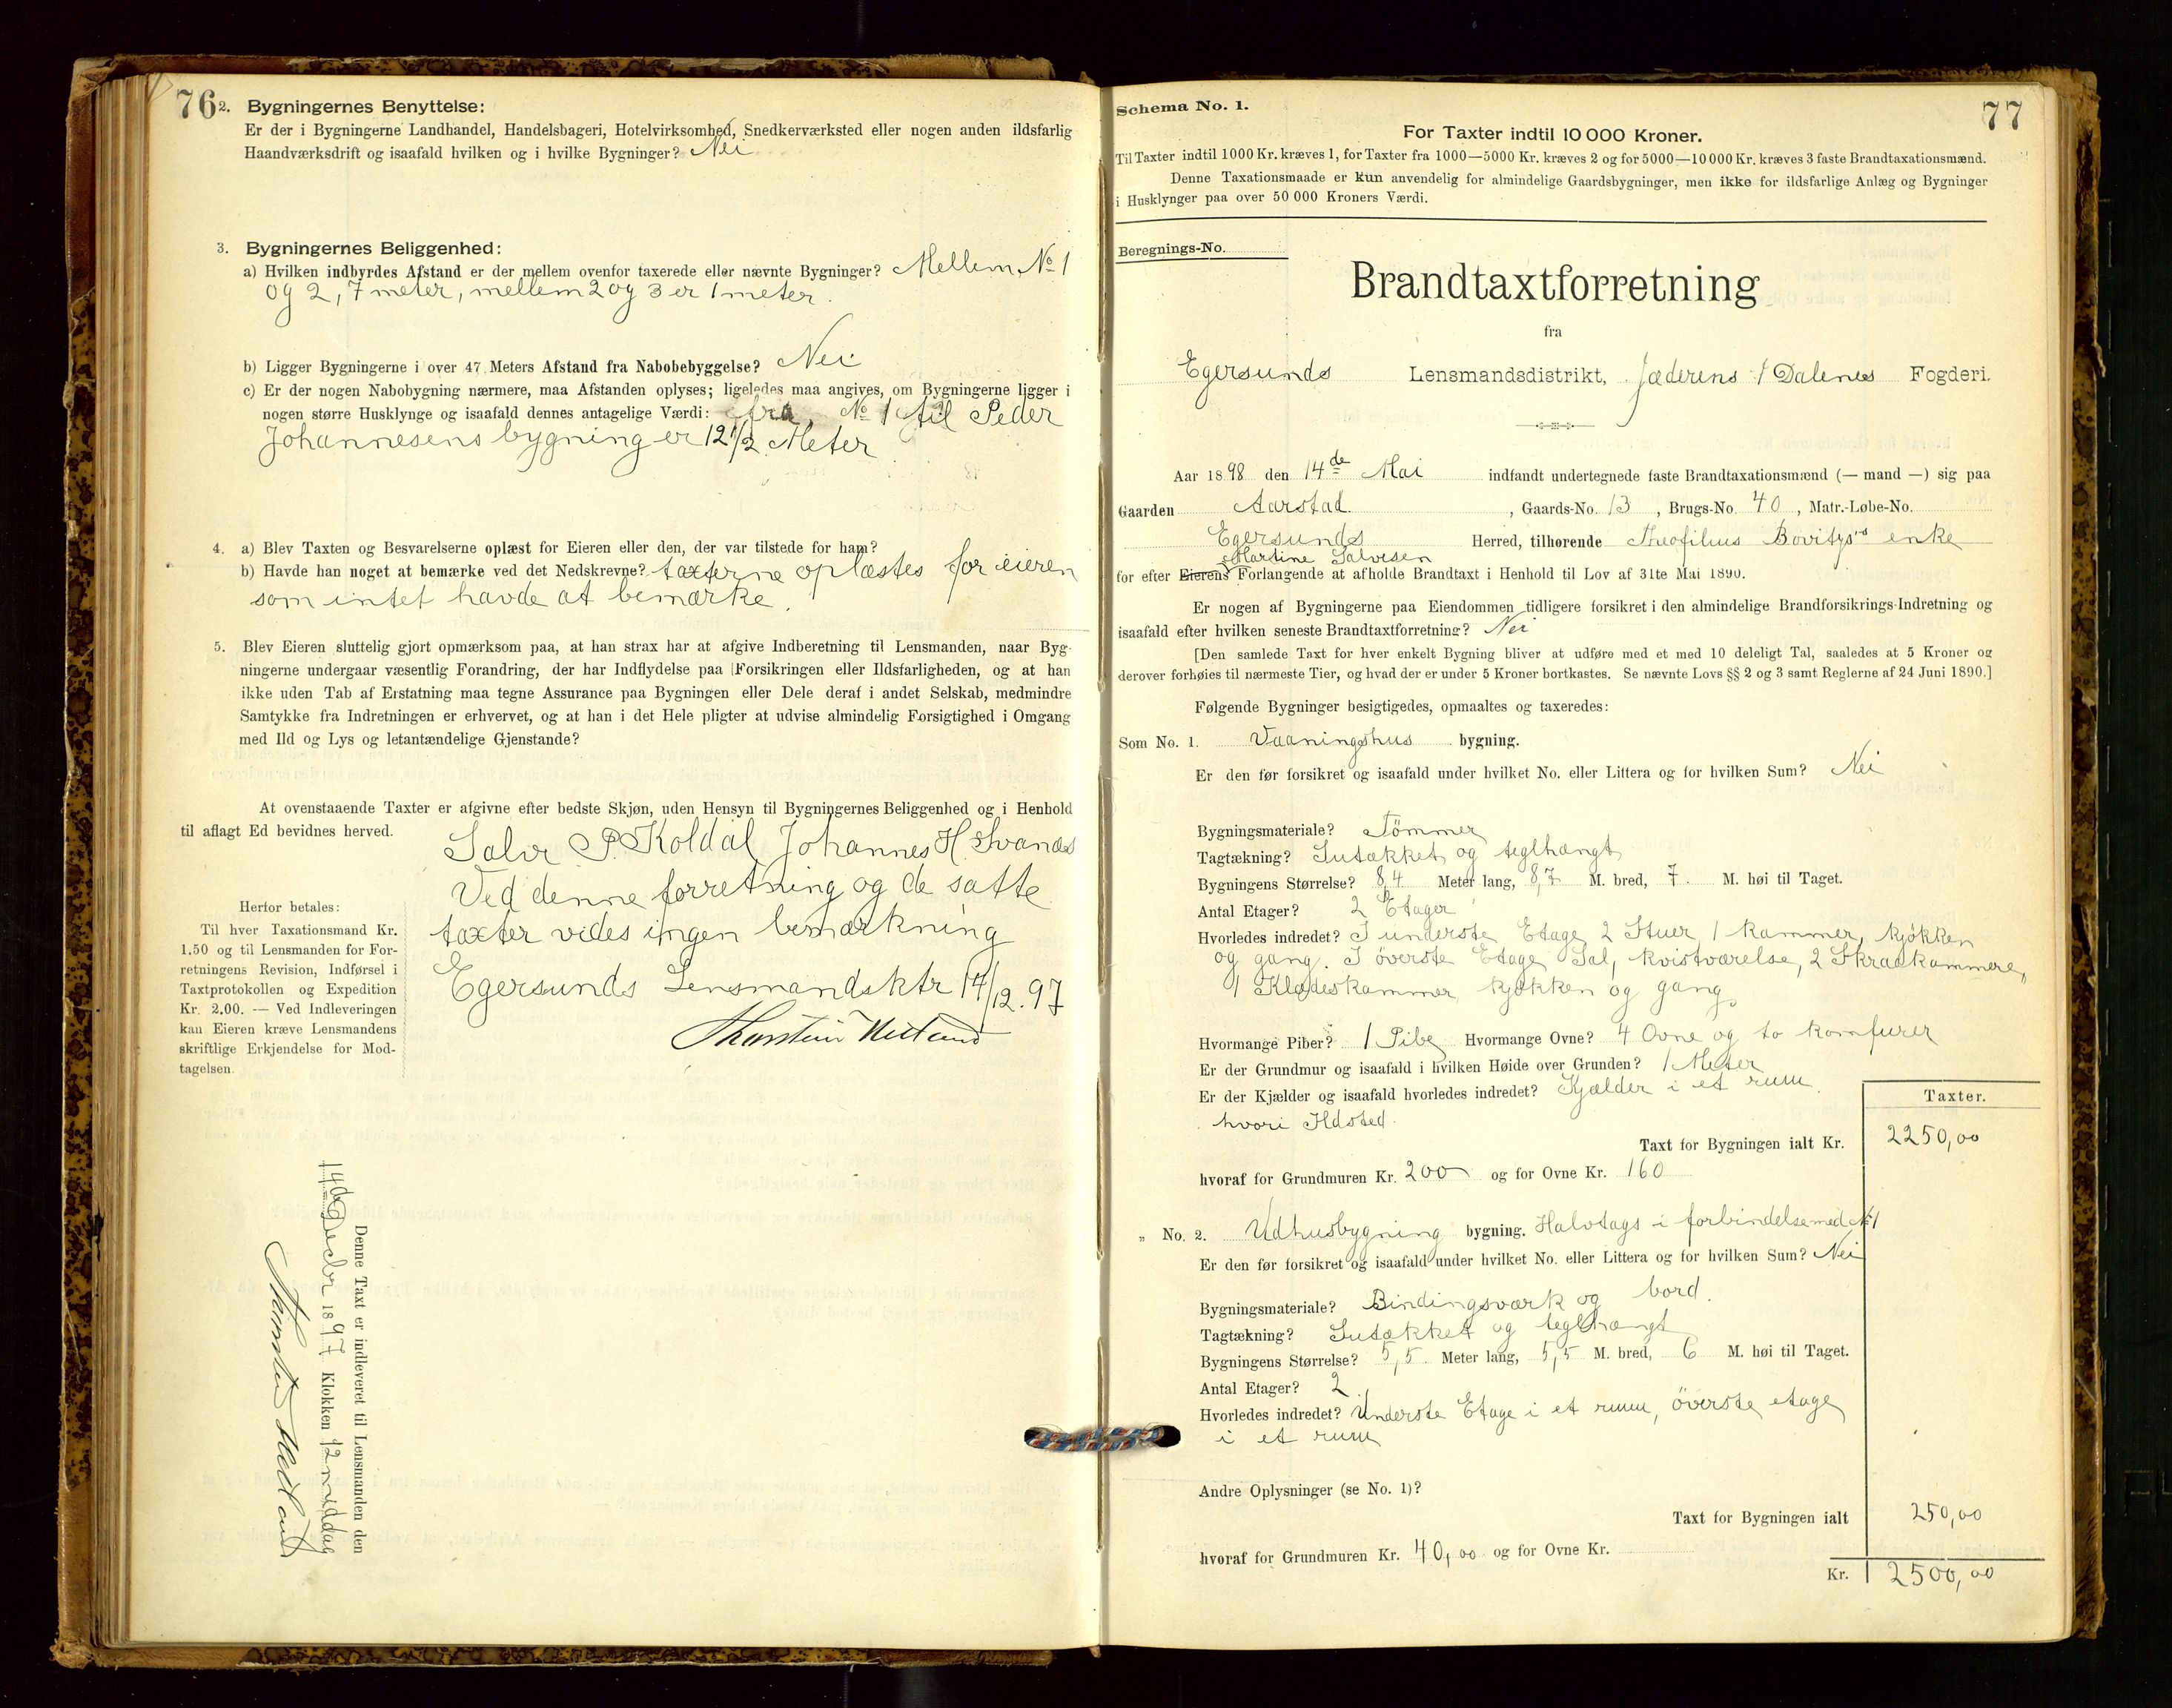 76
2. Bygningernes Benyttelse:
Er der i Bygningerne Landhandel, Handelsbageri, Hotelvirksomhed, Snedkerværksted eller nogen anden ildsfarlig
Haandværksdrift og isaafald hvilken og i hvilke Bygninger? Nei
3. Bygningernes Beliggenhed:
a) Hvilken indbyrdes Afstand er der mellem ovenfor taxerede eller nævnte Bygninger? Mellem No 1
og 2, 7 meter, mellem 2 og 3 er 1 meter.
b) Ligger Bygningerne i over 47 Meters Afstand fra Nabobebyggelse? Nei
c) Er der nogen Nabobygning nærmere, maa Afstanden oplyses; ligeledes maa angives, om Bygningerne ligger i
nogen større Husklynge og isaafald dennes antagelige Værdi: fra No 1 til Peder
Johannesens bygning er 12 1/2 Meter
4. a) Blev Taxten og Besvarelserne oplæst for Eieren eller den, der var tilstede for ham?
b) Havde han noget at bemærke ved det Nedskrevne? taxterne oplæstes for eieren
som intet havde at bemærke.
5. Blev Eieren sluttelig gjort opmærksom paa, at han strax har at afgive Indberetning til Lensmanden, naar Byg-
ningerne undergaar væsentlig Forandring, der har Indflydelse paa Forsikringen eller Ildsfarligheden, og at han
ikke uden Tab af Erstatning maa tegne Assurance paa Bygningen eller Dele deraf i andet Selskab, medmindre
Samtykke fra Indretningen er erhvervet, og at han i det Hele pligter at udvise almindelig Forsigtighed i Omgang
med Ild og Lys og letantændelige Gjenstande?
At ovenstaaende Taxter er afgivne efter bedste Skjøn, uden Hensyn til Bygningernes Beliggenhed og i Henhold
til aflagt Ed bevidnes herved.
Salve P. Koldal Johannes H. Svanes
Ved denne forretning og de satte
taxter vides ingen bemærkning
Egersunds Lensmandsktr 14/12.97
Herfor betales:
Til hver Taxationsmand Kr.
1.50 og til Lensmanden for For-
retningens Revision, Indførsel i
Taxtprotokollen og Expedition
Kr. 2.00. — Ved Indleveringen
kan Eieren kræve Lensmandens
skriftlige Erkjendelse for Mod-
tagelsen.
Denne Taxt er indleveret til Lensmanden den
14de Decbr 1897 Klokken 12 middag
77
Schema No. 1.
For Taxter indtil 10 000 Kroner.
Til Taxter indtil 1000 Kr. kræves 1, for Taxter fra 1000—5000 Kr. kræves 2 og for 5000—10 000 Kr. kræves 3 faste Brandtaxationsmænd.
Denne Taxationsmaade er kun anvendelig for almindelige Gaardsbygninger, men ikke for ildsfarlige Anlæg og Bygninger
i Husklynger paa over 50 000 Kroners Værdi.
Beregnings-No.
Brandtaxtforretning
fra
Egersunds Lensmandsdistrikt, Jæderens & Dalenes Fogderi.
Aar 1898 den 14de Mai indfandt undertegnede faste Brandtaxationsmænd (— mand —) sig paa
Gaarden Aarstad , Gaards-No. 13 , Brugs-No. 40 , Matr.-Løbe-No.
Egersunds Herred, tilhørende Theofilius enke
Martine Salvesen
for efter Eierens Forlangende at afholde Brandtaxt i Henhold til Lov af 31te Mai 1890.
Er nogen af Bygningerne paa Eiendommen tidligere forsikret i den almindelige Brandforsikrings-Indretning og
isaafald efter hvilken seneste Brandtaxtforretning? Nei
[Den samlede Taxt for hver enkelt Bygning bliver at udføre med et med 10 deleligt Tal, saaledes at 5 Kroner og
derover forhøies til nærmeste Tier, og hvad der er under 5 Kroner bortkastes. Se nævnte Lovs §§ 2 og 3 samt Reglerne af 24 Juni 1890.]
Følgende Bygninger besigtigedes, opmaaltes og taxeredes:
Som No. 1. Vaaningshus bygning.
Er den før forsikret og isaafald under hvilket No. eller Littera og for hvilken Sum? Nei
Bygningsmateriale? Tömmer
Tagtækning? Sutækket og teglhængt
Bygningens Størrelse? 8,4 Meter lang, 8,7 M. bred, 7 M. høi til Taget.
Antal Etager? 2 Etager
Hvorledes indredet? I underste Etage 2 Stuer 1 kammer, kjökken
og gang. I överste Etage Sal, kvistværelse, 2 Skraakammere,
1 Klædeskammer kjøkken og gang
Hvormange Piber? 1 Pibe Hvormange Ovne? 4 Ovne og to komfurer
Er der Grundmur og isaafald i hvilken Høide over Grunden? 1 Meter
Er der Kjælder og isaafald hvorledes indredet? Kjælder i et rum
hvori Ildsted.
Taxter.
Taxt for Bygningen ialt Kr. 2250,00
hvoraf for Grundmuren Kr. 200 og for Ovne Kr. 160
„ No. 2. Udhusbygning bygning. Halvtags i forbindelse med No 1
Er den før forsikret og isaafald under hvilket No. eller Littera og for hvilken Sum? Nei
Bygningsmateriale? Bindingsværk og bord.
Tagtækning? Sutækket og teglhængt
Bygningens Størrelse? 5,5 Meter lang, 5,5 M. bred, 6 M. høi til Taget.
Antal Etager? 2
Hvorledes indredet? Underste Etage i et rum, överste etage
i et rum
Andre Oplysninger (se No. 1)?
Taxt for Bygningen ialt 250,00
hvoraf for Grundmuren Kr. 40,00 og for Ovne Kr.
Kr. 2500,00